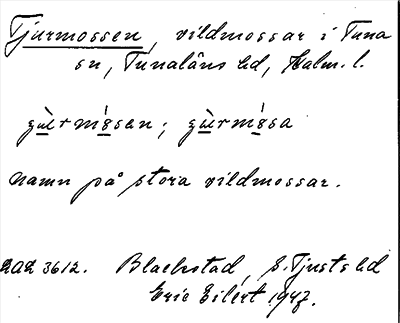 Tjurmossen, vildmossar i Tuna
sn, Tunaläns hd, Kalm. l.
gùrmósen; gùrmósa
namn på stora vildmossar.
ULD 3612. Blackstad, S. Tjusts hd
Eric Eilert 1947.